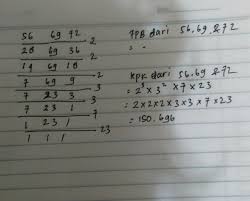 56 69 72
28 69 36 2
14 69 18 2
7 69 9 2
7 23 3 3
7 23 1 3
1 23 1 7
1 1 1 23
FPB dari 56, 69, & 72
= -
KPK dari 56, 69 & 72
= 2³ × 3² × 7 × 23
= 2 × 2 × 2 × 3 × 3 × 7 × 23
= 150.696